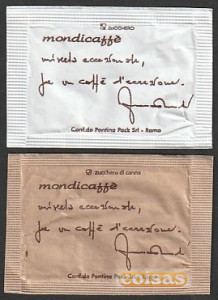 ZUCCHERO
mondicaffè
miscela eccezionale,
per un caffè d'eccezione.
Conf.da Pontina Pack Srl - Roma
zucchero di canna
mondicaffè
miscela eccezionale,
per un caffè d'eccezione.
Conf.da Pontina Pack
coisas